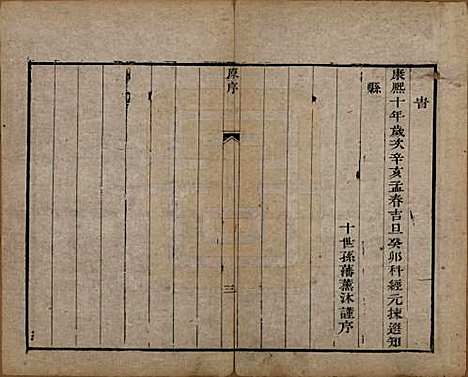 冑
康熙十年歲次辛亥孟春吉旦癸卯科經元揀選知
縣
十世孫藩薰沐謹序
原序
三